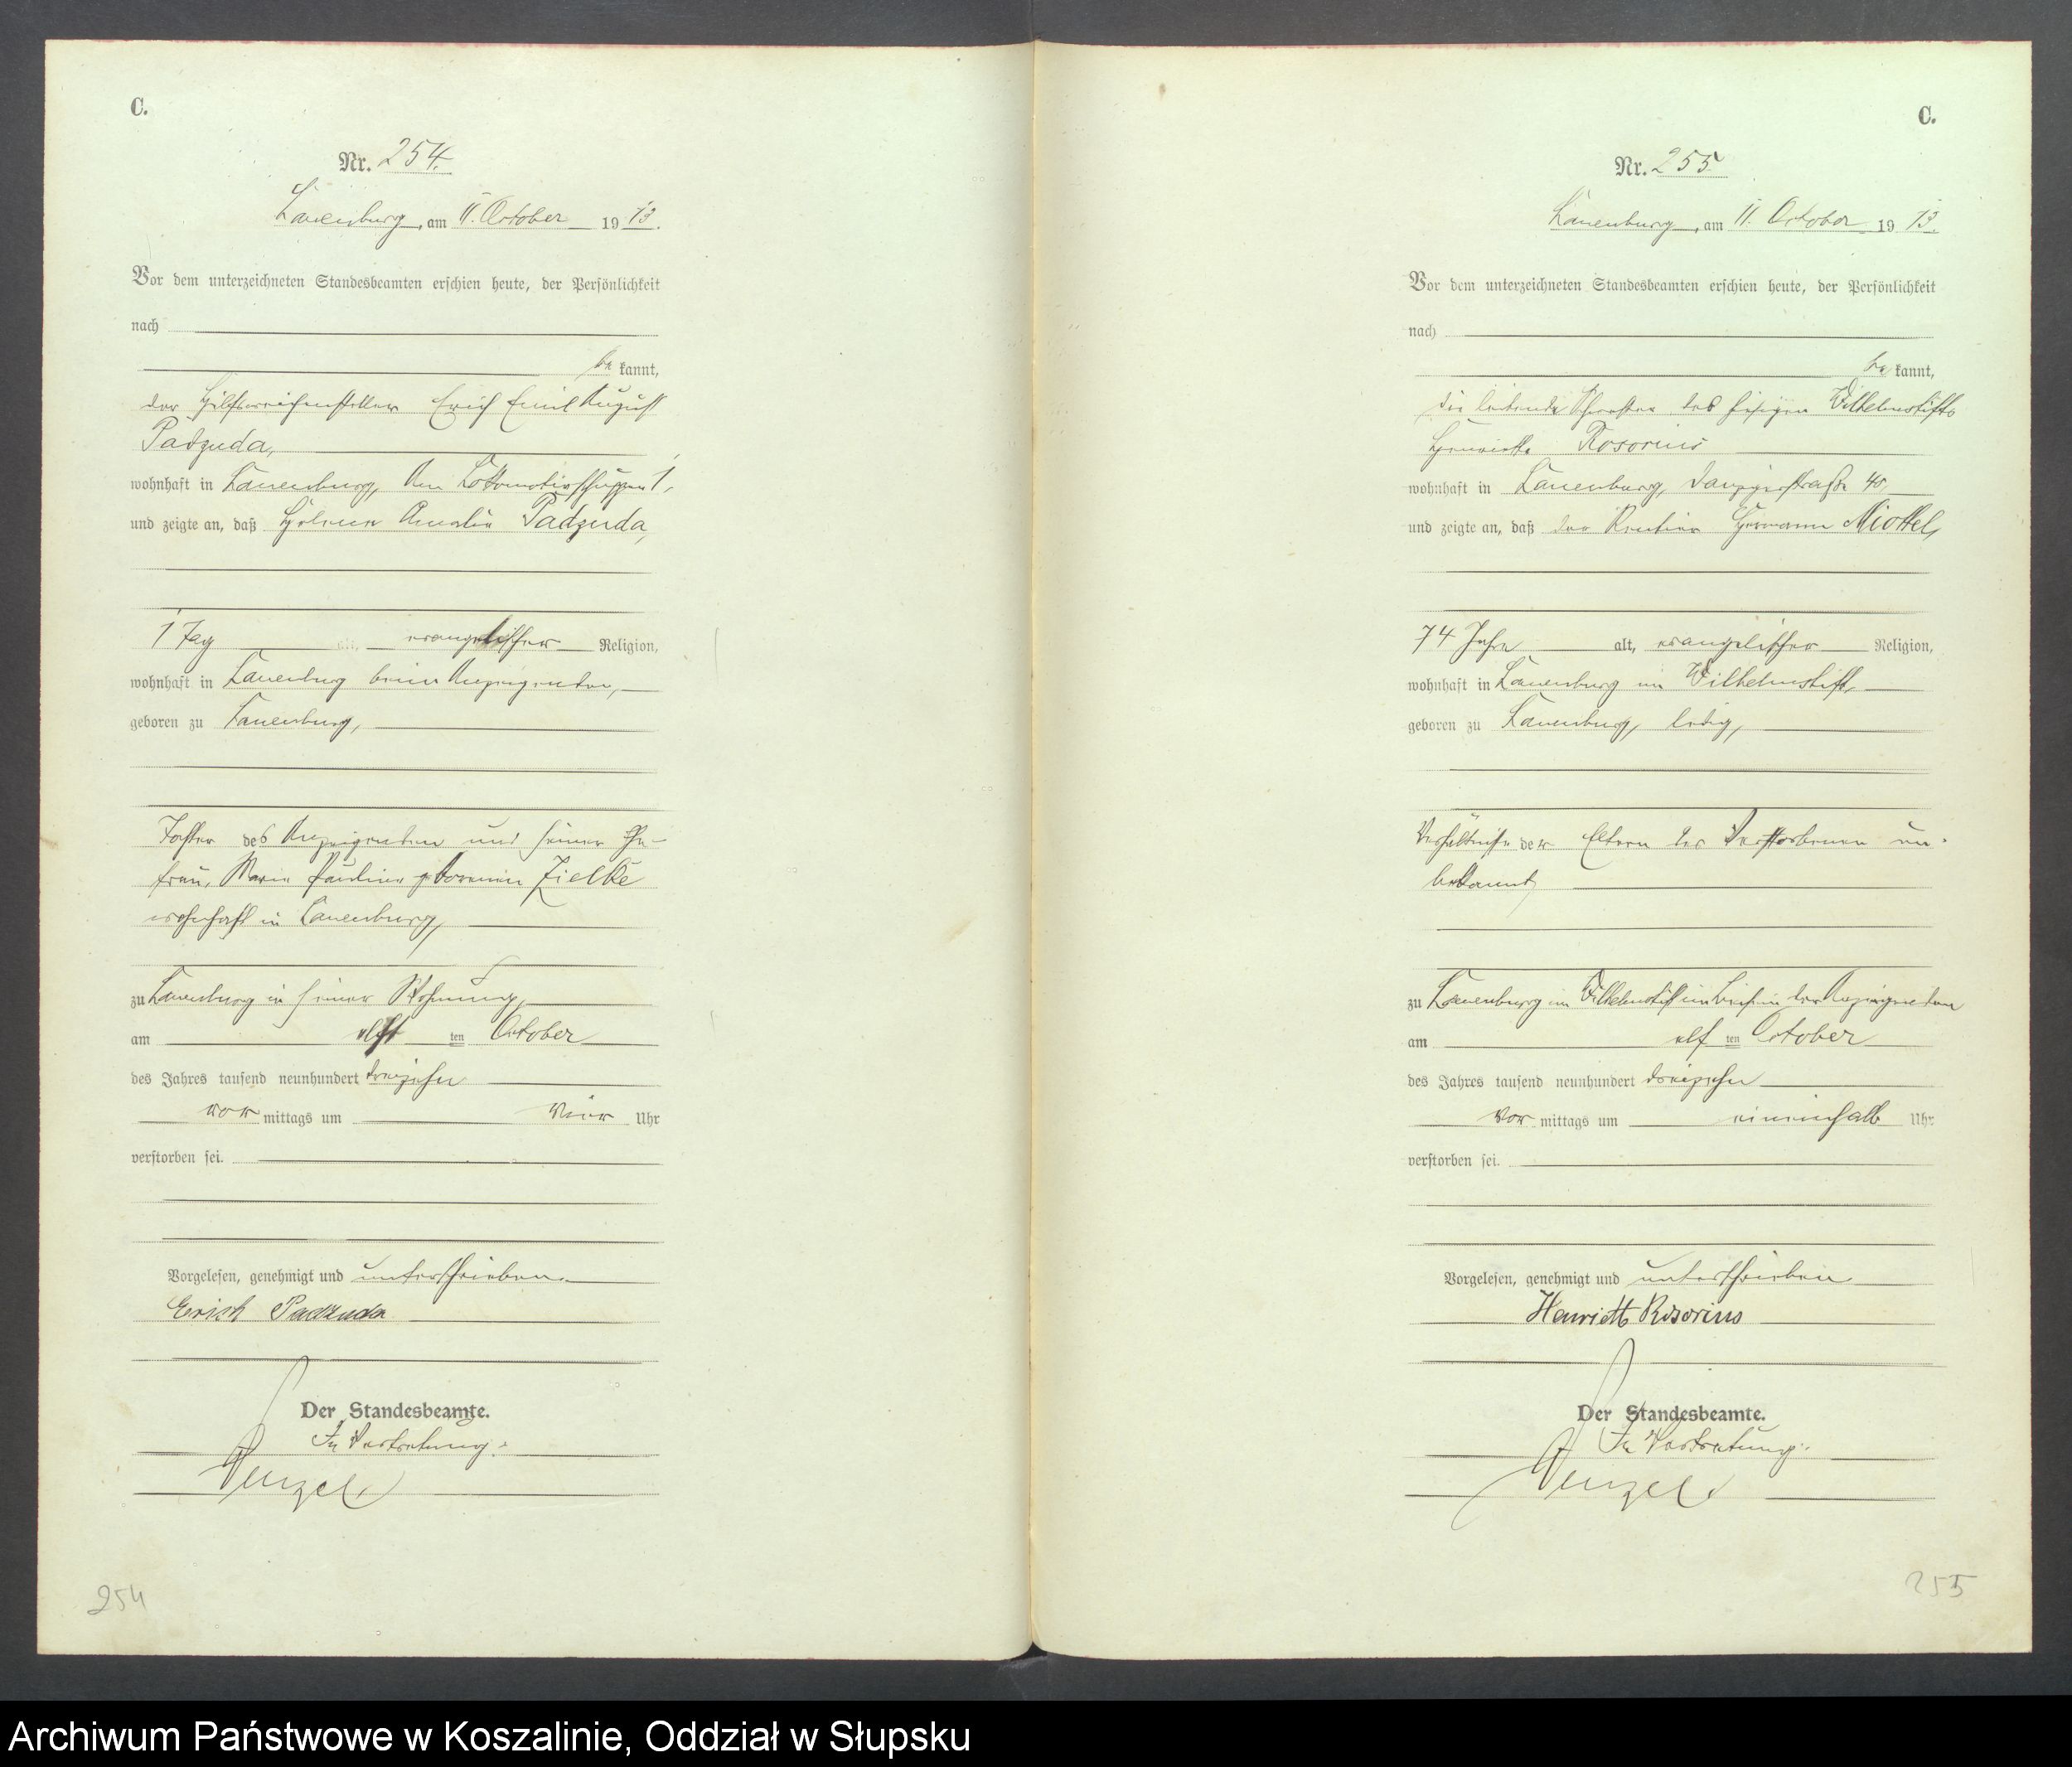 C.
Nr. 254.
Lauenburg, am 11. October 1913.
Vor dem unterzeichneten Standesbeamten erschien heute, der Persönlichkeit
nach
be kannt,
der Hilfsweichensteller Erich Emil August
Padzuda,
wohnhaft in Lauenburg, Am Lokomotivschuppen 1,
und zeigte an, daß Helene Amalie Padzuda,
1 Tag alt, evangelischer Religion,
wohnhaft in Lauenburg beim Anzeigenden,
geboren zu Lauenburg,
Tochter des Anzeigenden und seiner Ehe-
frau, Marie Pauline geborenen Zielke
wohnhaft in Lauenburg,
zu Lauenburg in seiner Wohnung,
am elften October
des Jahres tausend neunhundert dreizehn
vor mittags um vier Uhr
verstorben sei.
Vorgelesen, genehmigt und unterschrieben.
Erich Padzuda
Der Standesbeamte.
In Vertretung.
Wenzel
254
C.
Nr. 255
Lauenburg, am 11. October 1913.
Vor dem unterzeichneten Standesbeamten erschien heute, der Persönlichkeit
nach
be kannt,
die leitende Schwester des hiesigen Wilhelmstifts
Henriette Rosorius
wohnhaft in Lauenburg, Danzigerstraße 40,
und zeigte an, daß der Rentier Hermann Miottel,
74 Jahre alt, evangelischer Religion,
wohnhaft in Lauenburg im Wilhelmstift,
geboren zu Lauenburg, ledig,
Verhältnisse der Eltern des Verstorbenen un-
bekannt,
zu Lauenburg im Wilhelmstift im Beisein der Anzeigenden
am elf ten October
des Jahres tausend neunhundert dreizehn
vor mittags um eineinhalb Uhr
verstorben sei.
Vorgelesen, genehmigt und unterschrieben
Henriette Rosorius
Der Standesbeamte.
In Vertretung.
Wenzel
255
Archiwum Państwowe w Koszalinie, Oddział w Słupsku